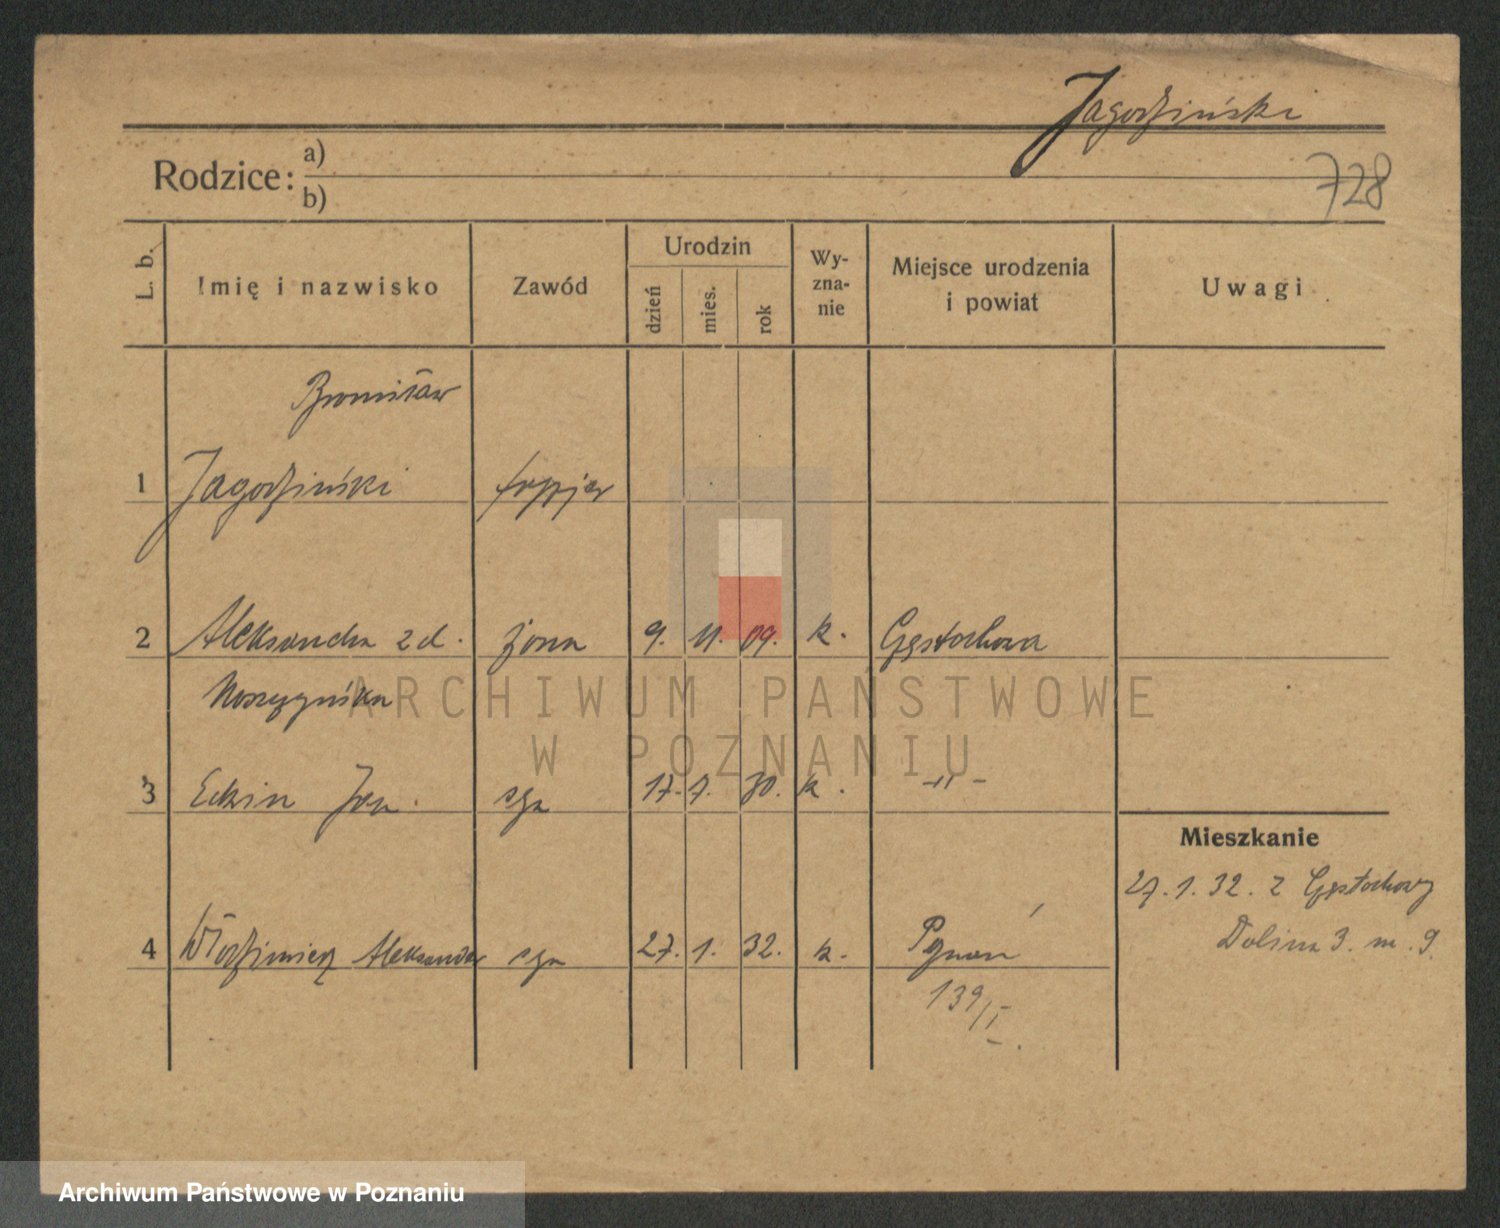 Jagodziński
728
Rodzice: a)
b)
L. b. Imię i nazwisko Zawód Urodzin dzień mies. rok Wy-zna-nie Miejsce urodzenia i powiat Uwagi
Bronisław
1 Jagodziński
2 Aleksandra z d. żona 9. 11. 09. k. Częstochowa
3 Edwin Jan. syn 17. 7. 30. k. -"-
Mieszkanie
27. 1. 32. z Częstochowy
Dolina 3. m. 9.
4 Włodzimierz Aleksander syn 27. 1. 32. k. Poznań
139/I
ARCHIWUM PAŃSTWOWE
W POZNANIU
Archiwum Państwowe w Poznaniu